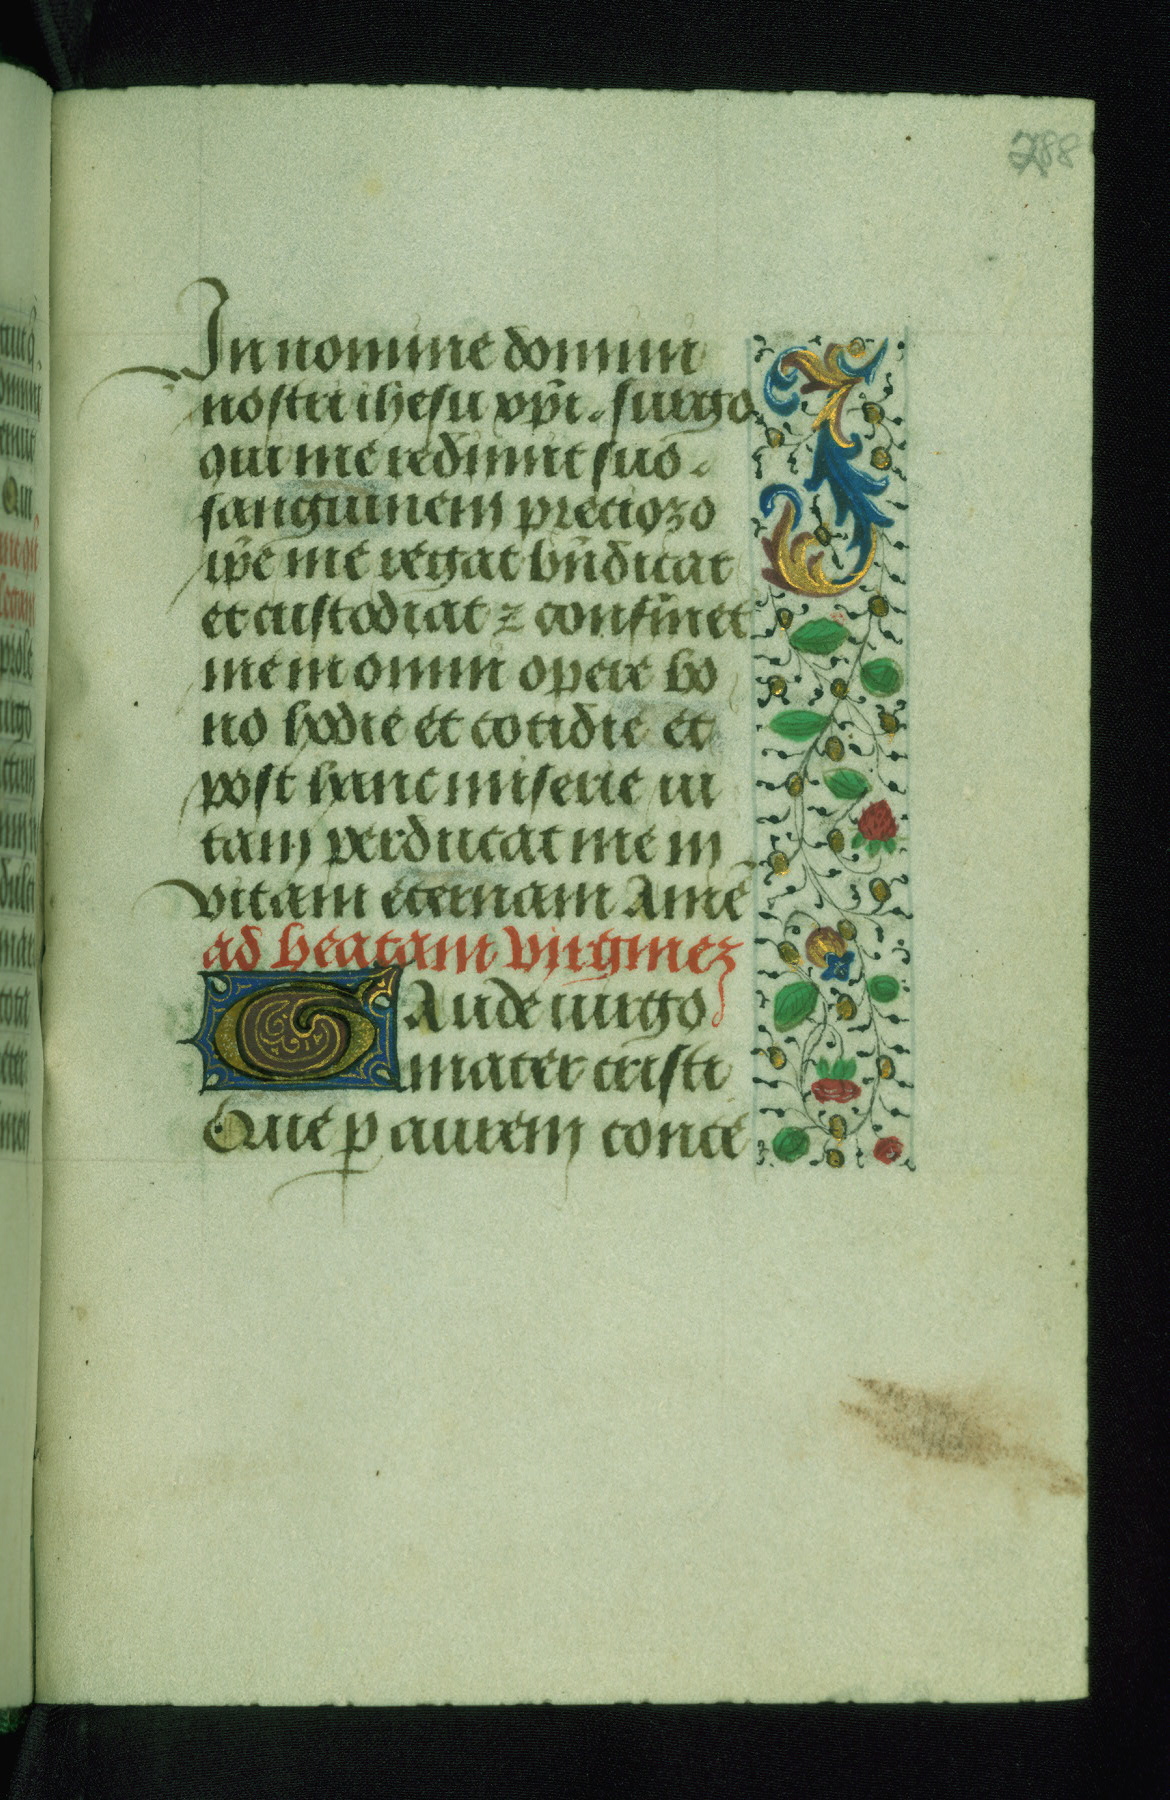 288
In nomine domini
nostri ihesu xp̄i. surgo
qui me redimit suo
sanguinem preciozo
ip̄e me regat bn̄dicat
et custodiat ⁊ confirmet
me in omni opere bo
no hodie et cotidie et
post hanc miserie ui
tam perducat me in
vitam eternam Amē
ad beatam virginez
Gaude uirgo
mater cristi
Que p aurem conce